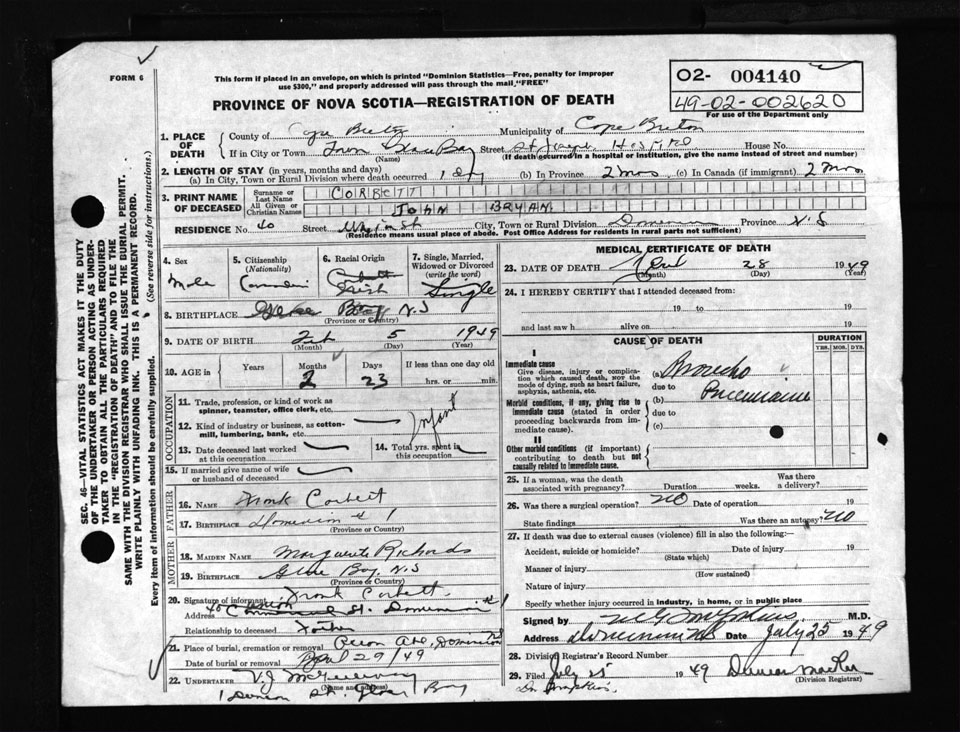 FORM 6
This form if placed in an envelope, on which is printed "Dominion Statistics—Free, penalty for improper
use $300," and properly addressed will pass through the mail, "FREE"
PROVINCE OF NOVA SCOTIA—REGISTRATION OF DEATH
02- 004140
49-02-002620
For use of the Department only
1. PLACE OF DEATH
County of Cape Breton Municipality of Cape Breton
If in City or Town Town Glace Bay Street St Joseph Hospital House No.
(Name) (If death occurred in a hospital or institution, give the name instead of street and number)
2. LENGTH OF STAY (in years, months and days)
(a) In City, Town or Rural Division where death occurred 1 day (b) In Province 2 mos (c) In Canada (if immigrant) 2 mos
3. PRINT NAME OF DECEASED
Surname or Last Name CORBETT
All Given or Christian Names JOHN BRYAN
RESIDENCE No. 40 Street City, Town or Rural Division Dominion Province N.S
(Residence means usual place of abode. Post Office Address for residents in rural parts not sufficient)
4. Sex Male
5. Citizenship (Nationality) Canadian
6. Racial Origin Irish
7. Single, Married, Widowed or Divorced (write the word) Single
8. BIRTHPLACE Glace Bay N.S
(Province or Country)
9. DATE OF BIRTH Feb 5 1949
(Month) (Day) (Year)
10. AGE in Years Months 2 Days 23 If less than one day old hrs. or min.
OCCUPATION
11. Trade, profession, or kind of work as spinner, teamster, office clerk, etc.
12. Kind of industry or business, as cotton-mill, lumbering, bank, etc.
Infant
13. Date deceased last worked at this occupation
14. Total yrs. spent in this occupation
15. If married give name of wife or husband of deceased
FATHER
16. NAME Frank Corbett
17. BIRTHPLACE Dominion # 1
(Province or Country)
MOTHER
18. MAIDEN NAME Marguerite Richards
19. BIRTHPLACE Glace Bay N.S
(Province or Country)
20. Signature of informant Frank Corbett
Address 40 St. Dominion # 1
Relationship to deceased Father
21. Place of burial, cremation or removal Ave, Dominion
Date of burial or removal April 29/49
22. UNDERTAKER V.J. McGillivray
(Name and address)
St Glace Bay
MEDICAL CERTIFICATE OF DEATH
23. DATE OF DEATH April 28 1949
(Month) (Day) (Year)
24. I HEREBY CERTIFY that I attended deceased from:
19 to 19
and last saw h alive on 19
CAUSE OF DEATH
DURATION
YRS. MOS. DYS.
I
Immediate cause
Give disease, injury or complication which caused death, not the mode of dying, such as heart failure, asphyxia, asthenia, etc.
(a) Broncho
due to
Morbid conditions, if any, giving rise to immediate cause (stated in order proceeding backwards from immediate cause).
(b) Pneumonia
due to
(c)
II
Other morbid conditions (if important) contributing to death but not causally related to immediate cause.
25. If a woman, was the death associated with pregnancy? Duration weeks. Was there a delivery?
26. Was there a surgical operation? NO Date of operation 19
State findings Was there an autopsy? NO
27. If death was due to external causes (violence) fill in also the following:—
Accident, suicide or homicide? Date of injury 19
(State which)
Manner of injury
(How sustained)
Nature of injury
Specify whether injury occurred in industry, in home, or in public place
Signed by M.D.
Address Dominion NS Date July 25 1949
28. Division Registrar's Record Number
29. Filed July 25 1949 Duncan
(Division Registrar)
SEC. 46—VITAL STATISTICS ACT MAKES IT THE DUTY
OF THE UNDERTAKER OR PERSON ACTING AS UNDER-
TAKER TO OBTAIN ALL THE PARTICULARS REQUIRED
IN THE "REGISTRATION OF DEATH" AND TO FILE THE
SAME WITH THE DIVISION REGISTRAR WHO SHALL ISSUE THE BURIAL PERMIT.
WRITE PLAINLY WITH UNFADING INK. THIS IS A PERMANENT RECORD.
Every item of information should be carefully supplied. (See reverse side for instructions.)